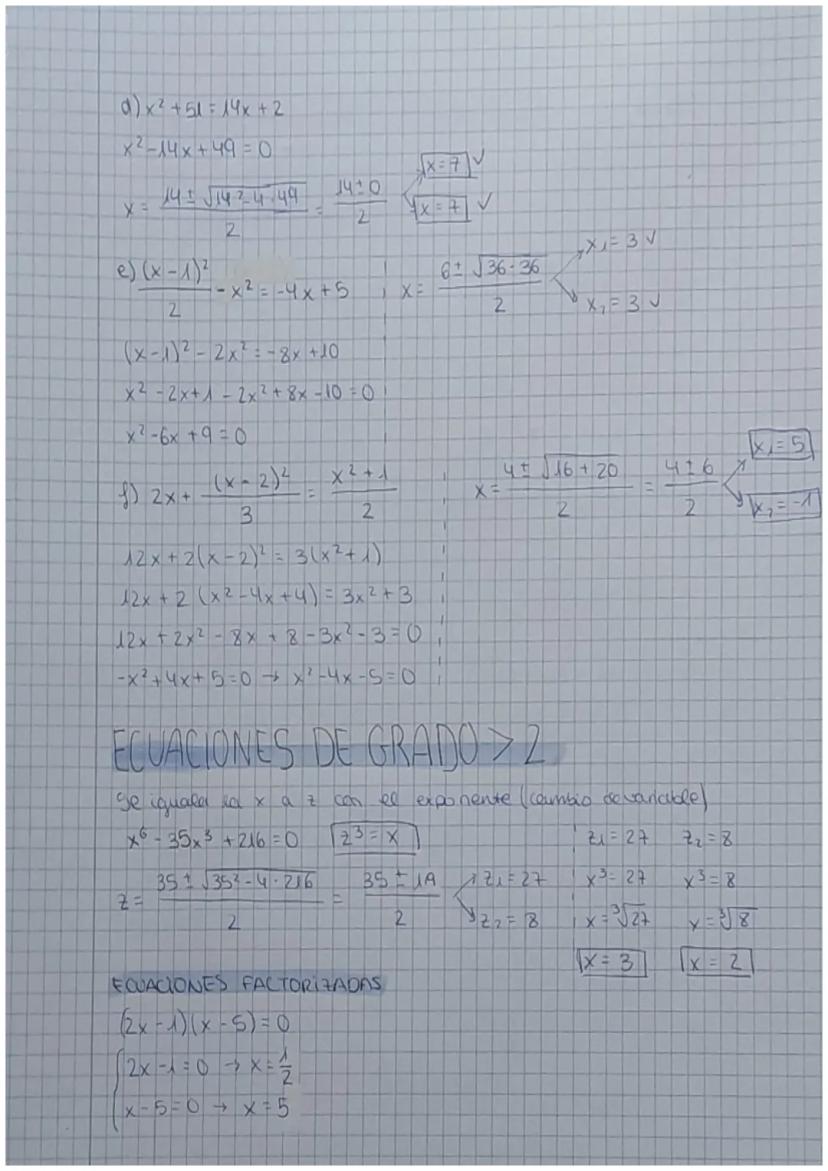 d) x² + 51 = 14x + 2
x² - 14x + 49 = 0
x = (14 ± √(14² - 4·49))/2 = (14 ± 0)/2 x = 7 ✓
x = 7 ✓
e) (x - 1)²/2 - x² = -4x + 5
(x - 1)² - 2x² = -8x + 10
x² - 2x + 1 - 2x² + 8x - 10 = 0
x² - 6x + 9 = 0
x = (6 ± √(36 - 36))/2 x₁ = 3 ✓
x₂ = 3 ✓
f) 2x + (x - 2)²/3 = (x² + 1)/2
12x + 2(x - 2)² = 3(x² + 1)
12x + 2(x² - 4x + 4) = 3x² + 3
12x + 2x² - 8x + 8 - 3x² - 3 = 0
-x² + 4x + 5 = 0 → x² - 4x - 5 = 0
x = (4 ± √(16 + 20))/2 = (4 ± 6)/2 x₁ = 5
x₂ = -1
ECUACIONES DE GRADO > 2
Se iguala la x a z con el exponente (cambio de variable)
x⁶ - 35x³ + 216 = 0 z³ = x
z = (35 ± √(35² - 4·216))/2 = (35 ± 19)/2 z₁ = 27
z₂ = 8
z₁ = 27 z₂ = 8
x³ = 27 x³ = 8
x = ∛27 x = ∛8
x = 3 x = 2
ECUACIONES FACTORIZADAS
(2x - 1)(x - 5) = 0
2x - 1 = 0 → x = 1/2
x - 5 = 0 → x = 5